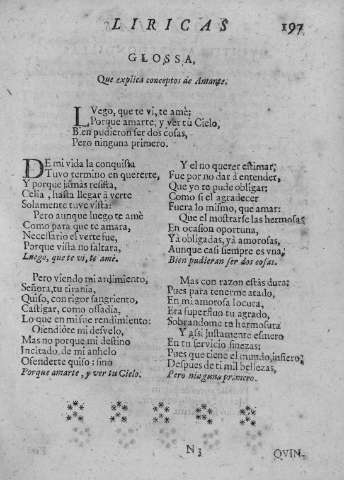 LIRICAS 197
GLOSSA,
Que explica conceptos de Amante.
LVego, que te vi, te amè;
Porque amarte, y ver tu Cielo,
Bien pudieron ser dos cosas,
Pero ninguna primero.
DE mi vida la conquista
Tuvo termino en quererte,
Y porque jamás resista,
Celia, hasta llegar à verte
Solamente tuve vista:
Pero aunque luego te amè
Como para que te amara,
Necessario el verte fue,
Porque vista no faltara,
Luego, que te vi, te amè.
Pero viendo mi ardimiento,
Señora, tu tirania,
Quiso, con rigor sangriento,
Castigar, como osadia,
Lo que en mi fue rendimiento:
Ofendiòte mi desvelo,
Mas no porque mi destino
Incitado, de mi anhelo
Ofenderte quiso: sino
Porque amarte, y ver tu Cielo.
Y el no querer estimar,
Fue por no dar à entender,
Que yo te pude obligar;
Como si el agradecer
Fuera lo mismo, que amar:
Que el mostrarse las hermosas
En ocasion oportuna,
Yà obligadas, yà amorosas,
Aunque casi siempre es vna,
Bien pudieran ser dos cosas.
Mas con razon estàs dura:
Pues para tenerme atado,
En mi amorosa locura,
Era superfluo tu agrado,
Sobrandome tu hermosura
Y assi justamente
En tu servicio finezas;
Pues que tiene el mundo, infiero,
Despues de ti mil bellezas,
Pero ninguna primero.
N3 QVIN-